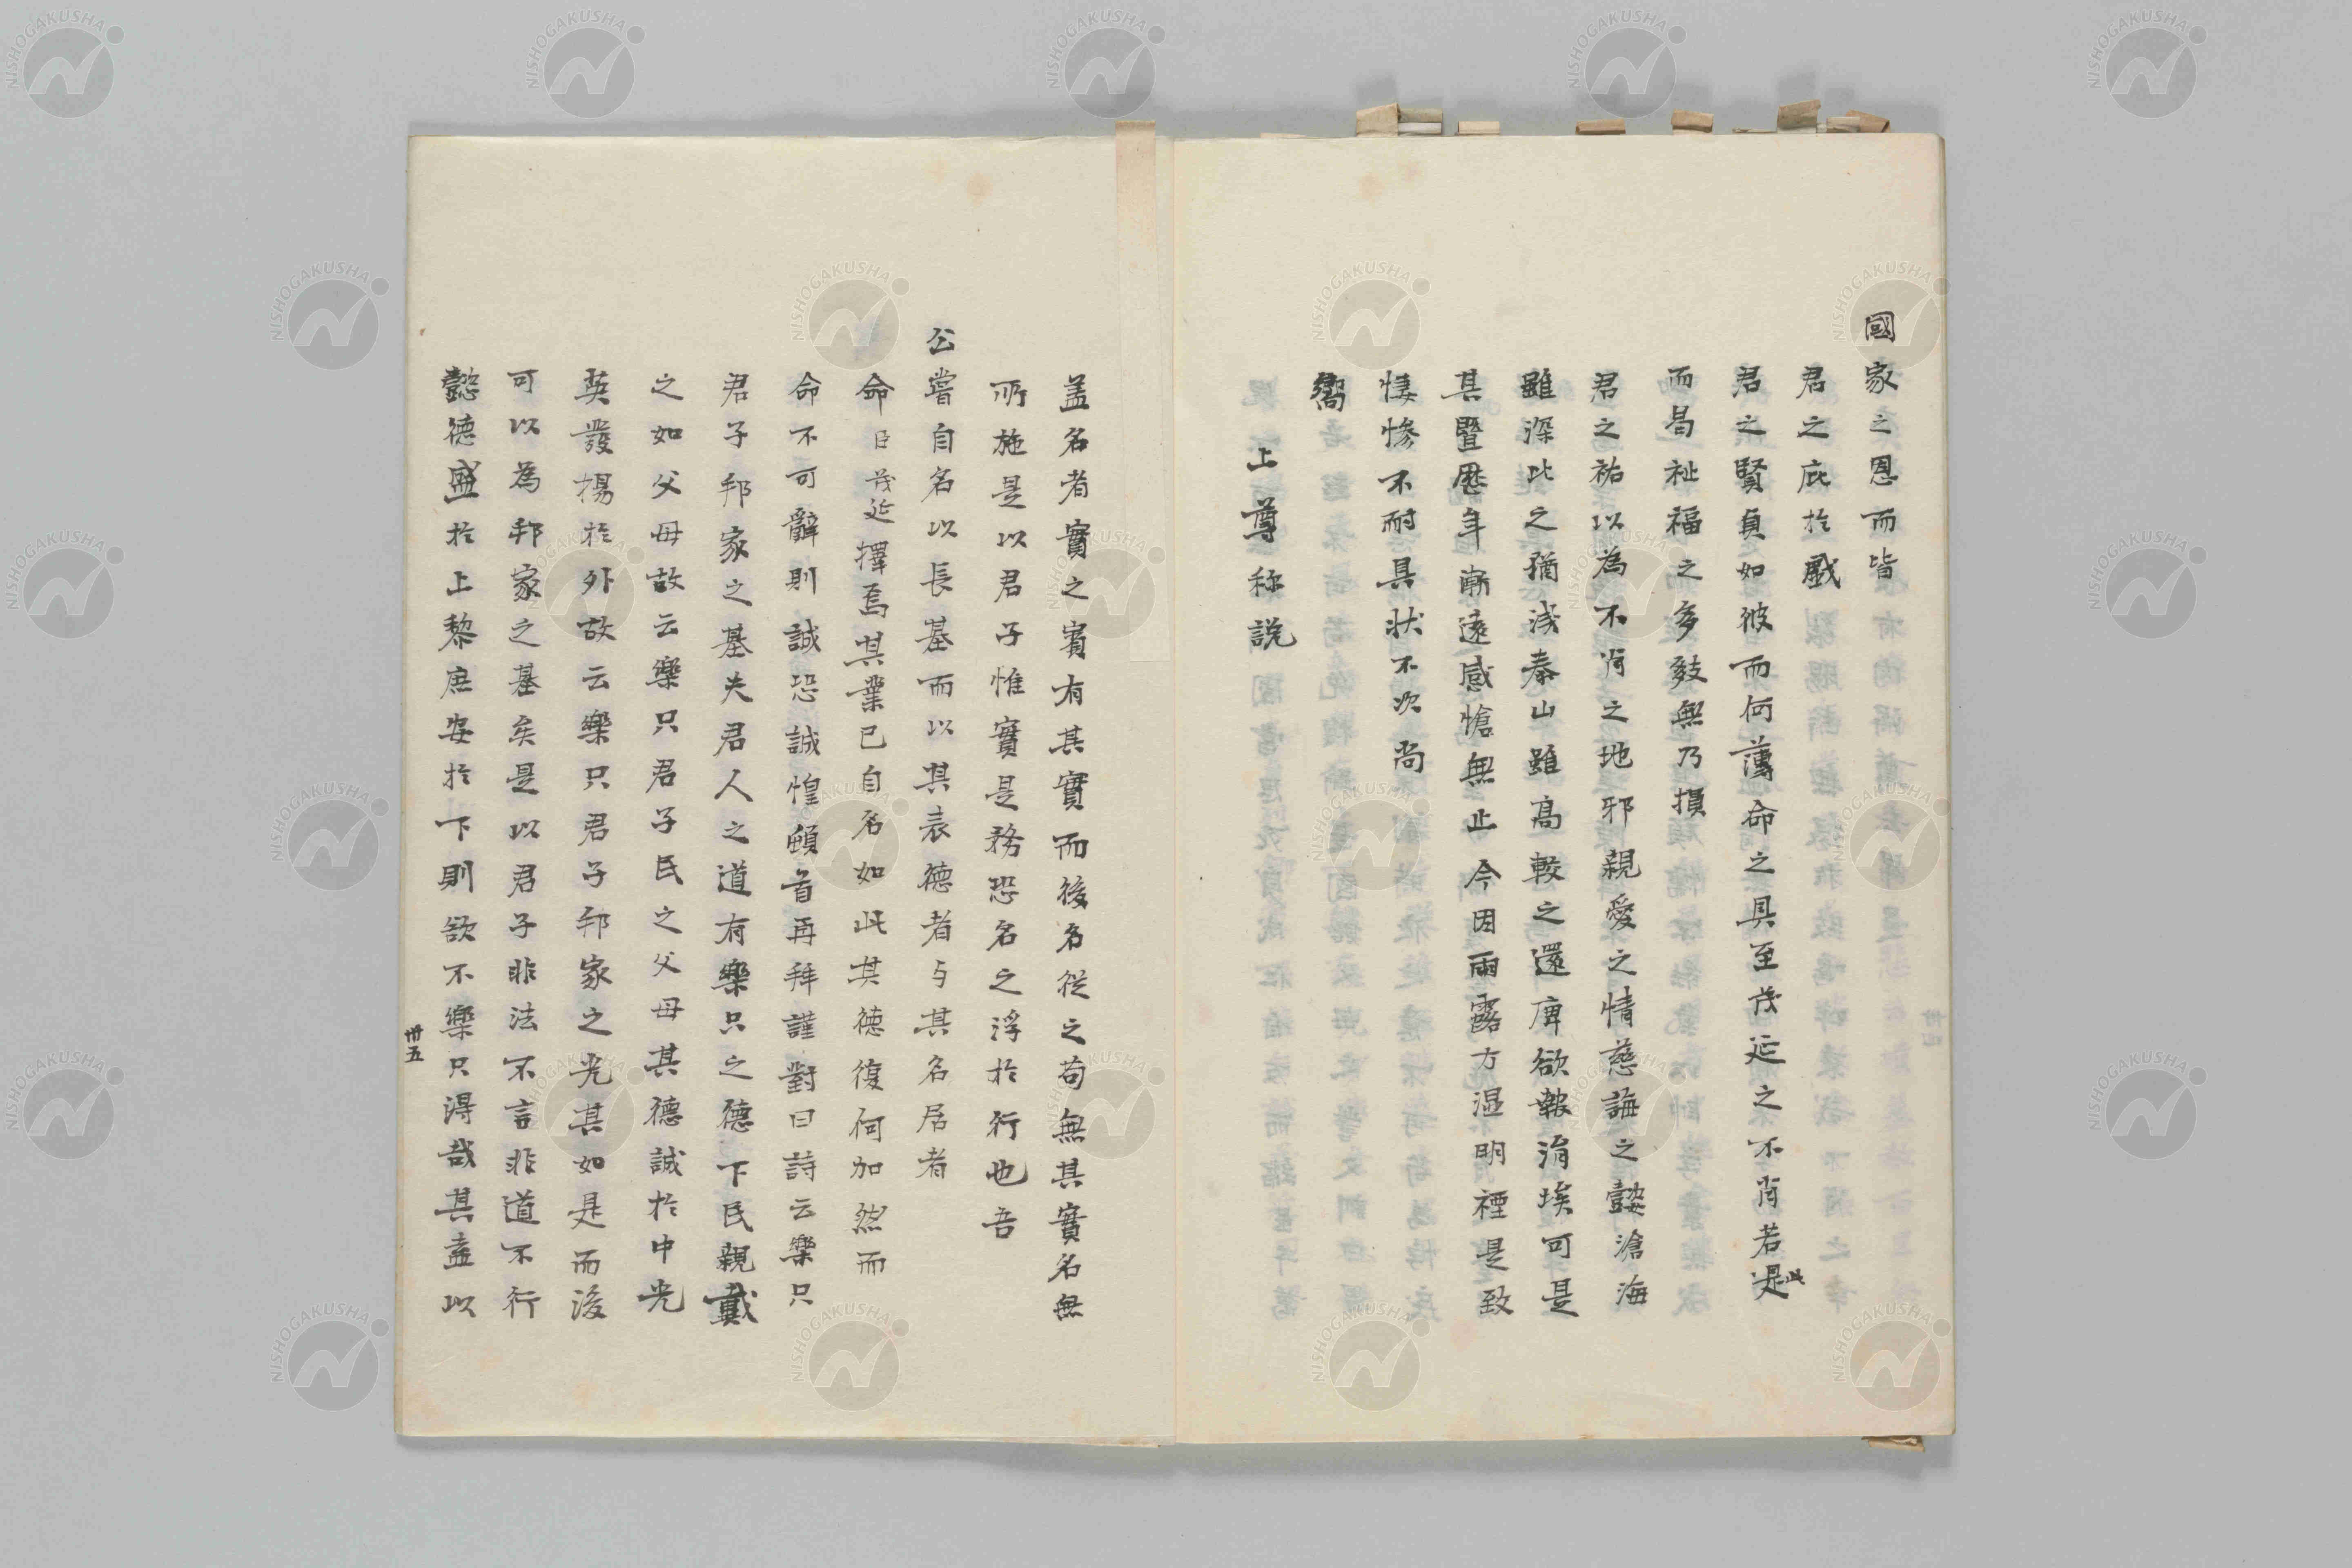 國家之恩而皆
君之庇於戲
君之賢負如彼而何薄命之具至茂延之不肖若是此
而曷祉福之多敍無乃損
君之祐以為不肖之地邪親愛之情慈誨之懿滄海
雖深比之猶浅泰山雖高較之還庳欲報涓埃可是
其曁歴年漸遠感愴無止今因雨露方湿明禋是致
悽慘不耐具状不次尚
嚮
上尊称説
盖名者實之賓有其實而後名従之苟無其實名無
所施是以君子惟實是務恐名之浮於行也吾
公嘗自名以長基而以其表徳者与其名居者
命臣茂延擇焉其業已自名如此其徳復何加然而
命不可辭則誠恐誠惶頓首再拜謹對曰詩云樂只
君子邦家之基夫君人之道有樂只之德下民親戴
之如父母故云樂只君子民之父母其德誠於中光
英發揚於外故云樂只君子邦家之光其如是而後
可以為邦家之基矣是以君子非法不言非道不行
懿徳盛於上黎庶安於下則欲不樂只得哉其盍以
卅五
NISHOGAKUSHA